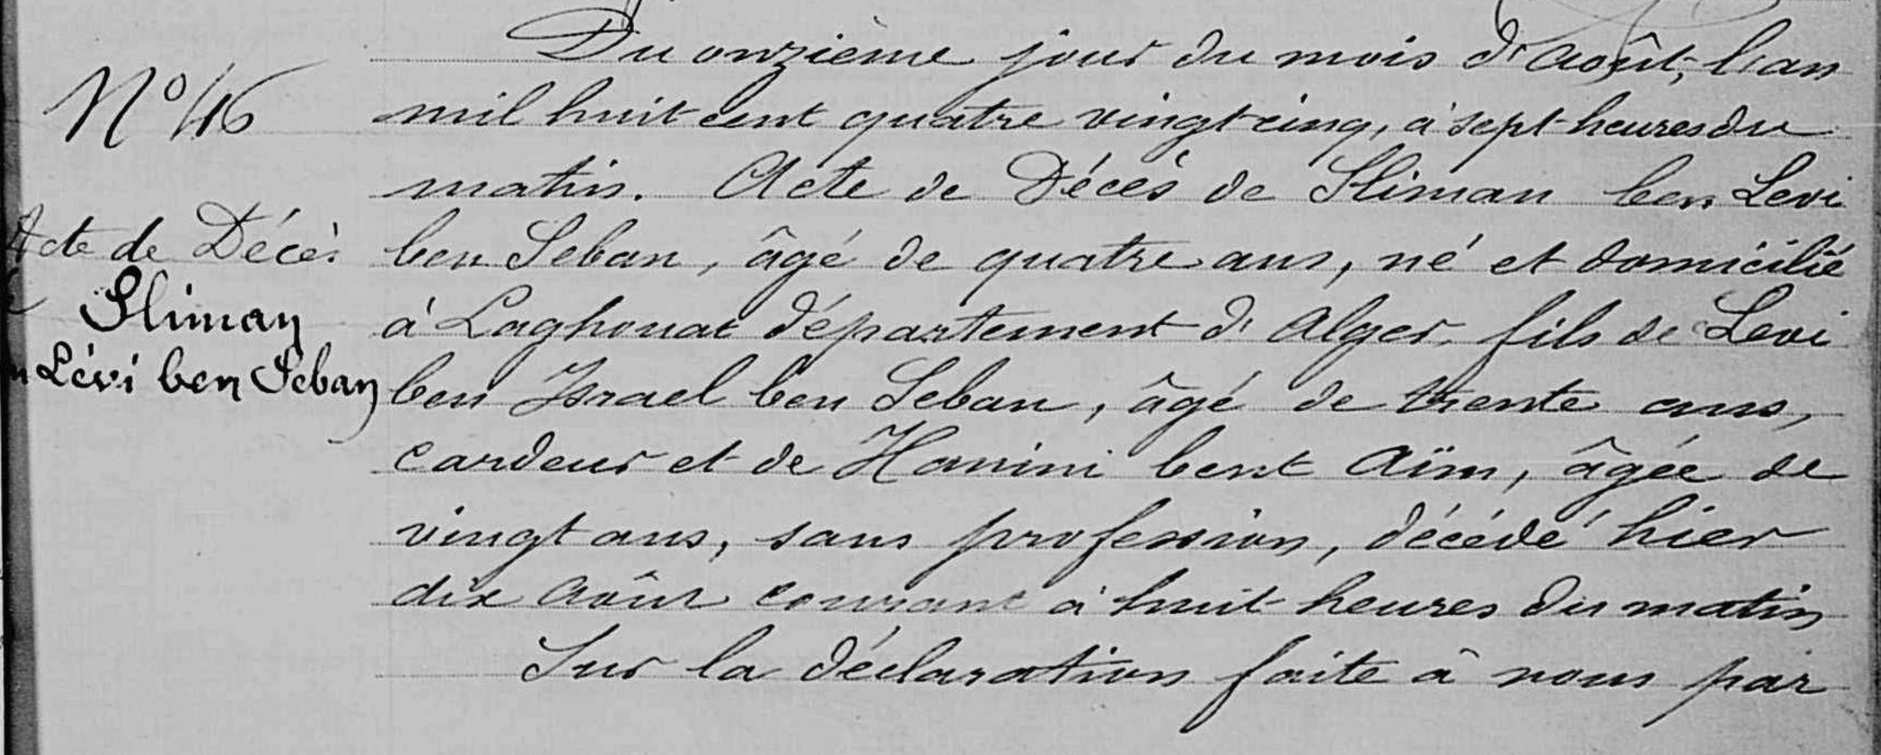 Nº 46
Acte de Décès
Sliman
Lévi ben Seban
Du onzième jour du mois d'août, l'an
mil huit cent quatre vingt cinq, à sept heures du
matin. Acte de Décès de Sliman ben Levi
ben Seban, âgé de quatre ans, né et domicilié
à Laghouat département d'Alger, fils de Levi
ben Israel ben Seban, âgé de trente ans,
cardeur et de Hanini bent Aïm, âgée de
vingt ans, sans profession, décédé hier
dix août courant à huit heures du matin
Sur la déclaration faite à nous par